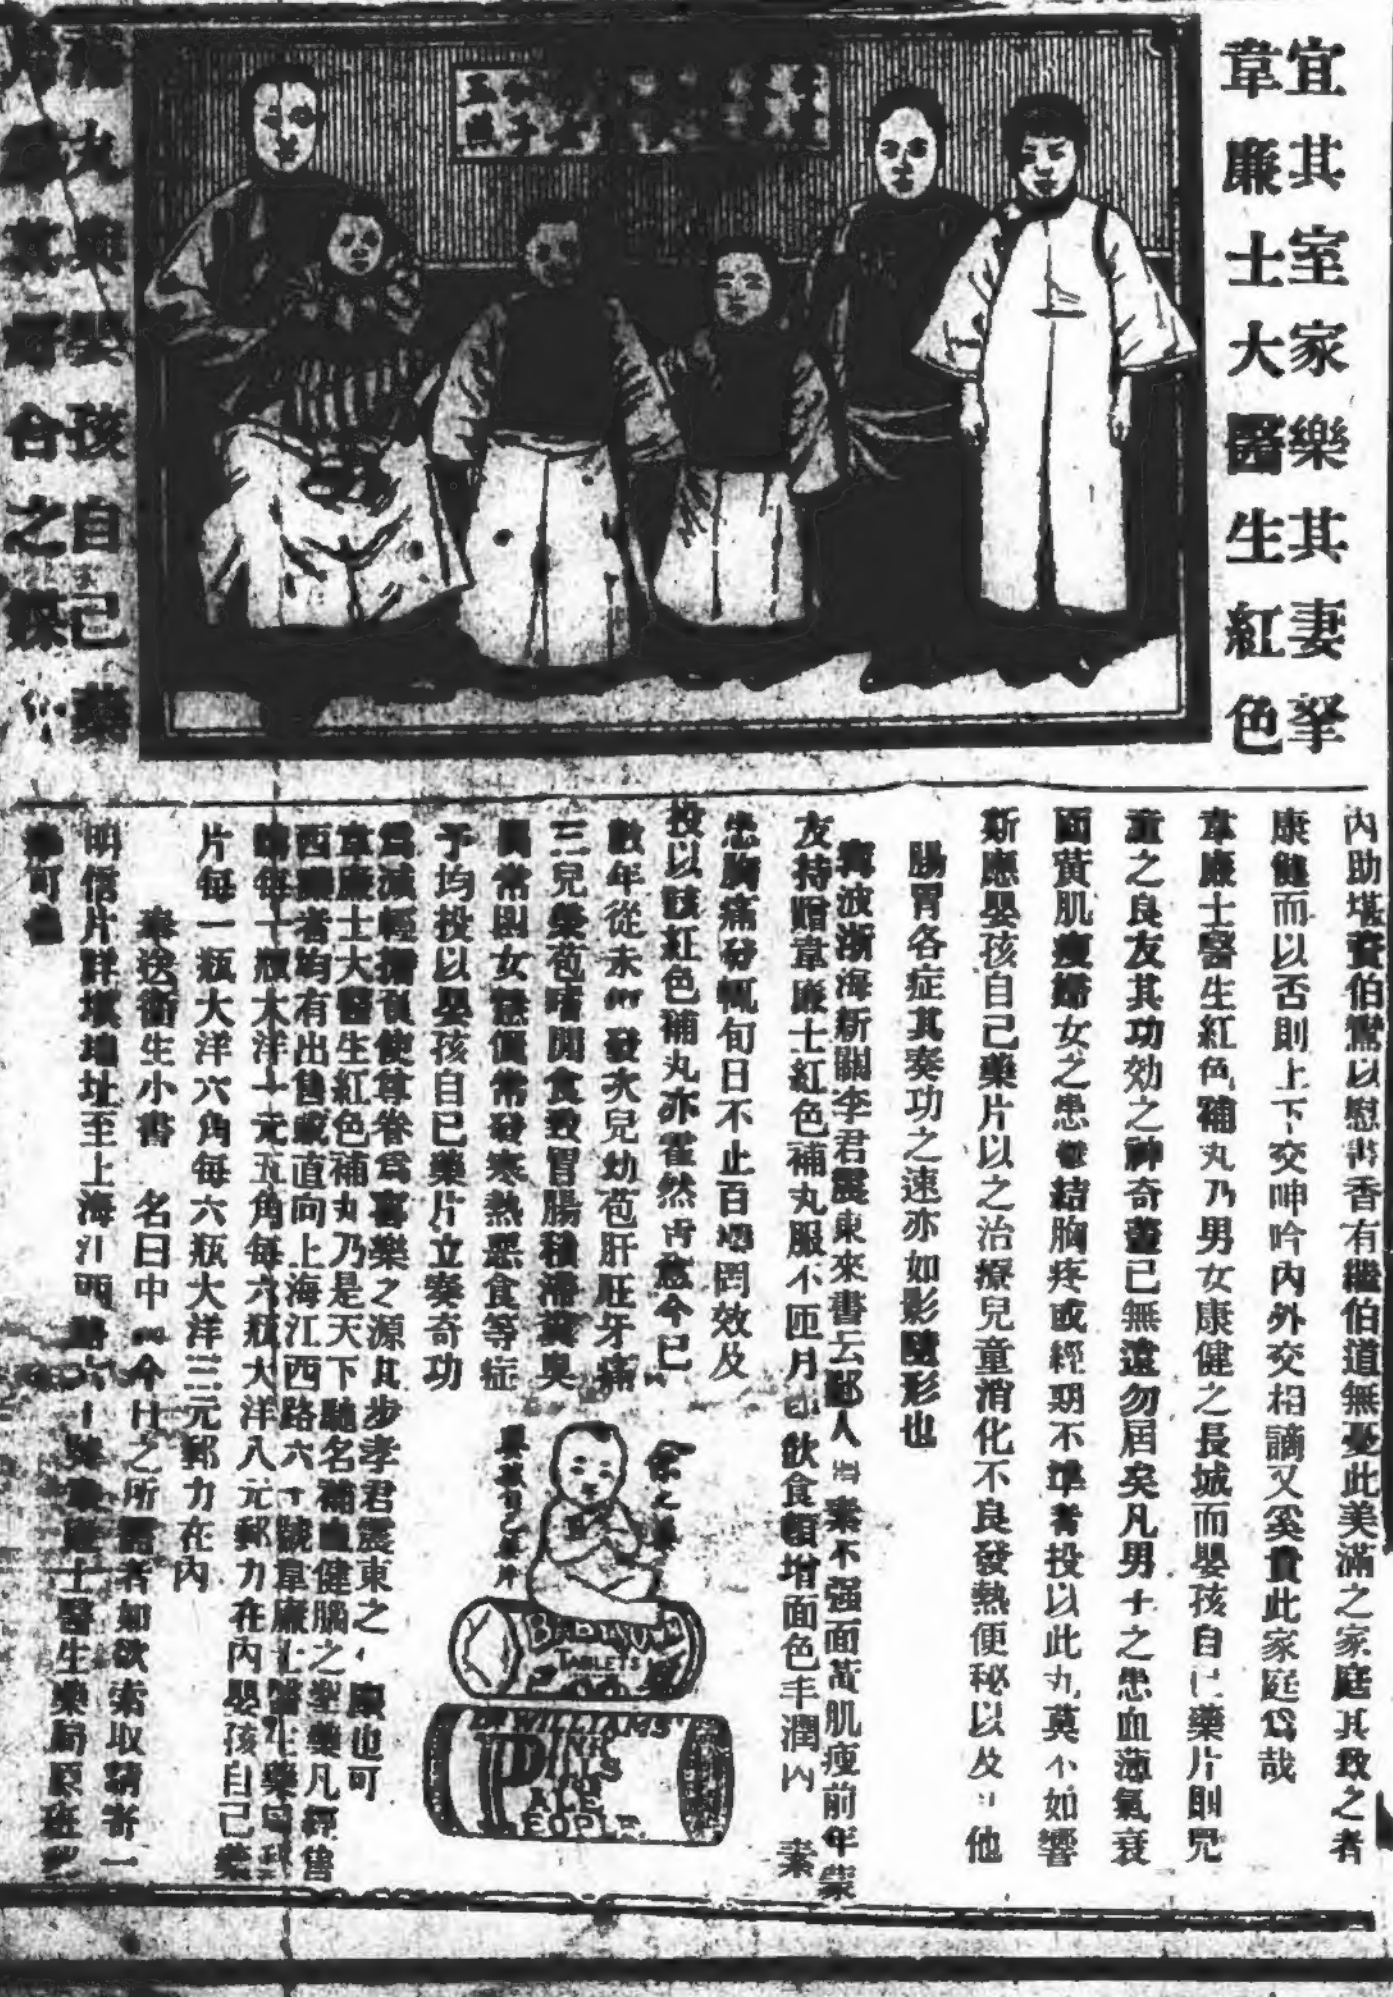 宜其室家樂其妻孥
韋廉士大醫生紅色
補丸與嬰孩自己藥
合之
內助堪資伯鸞以慰書香有繼伯道無憂此美滿之家庭其致之者
康健而以否則上下交呻吟內外交相謫又奚貴此家庭爲哉
韋廉士醫生紅色補丸乃男女康健之長城而嬰孩自己藥片則兒
童之良友其功効之神奇蓋已無遠勿屆矣凡男子之患血薄氣衰
面黃肌瘦婦女之患鬱結胸疼或經期不準者投以此丸莫不如響
斯應嬰孩自己藥片以之治療兒童消化不良發熱便秘以及其他
腸胃各症其奏功之速亦如影隨形也
寗波浙海新關李君震東來書云鄙人素不强面黃肌瘦前年蒙
友持贈韋廉士紅色補丸服不匝月卽飲食頓增面色丰潤內素
患胸痛發輒旬日不止百罔效及
投以該紅色補丸亦霍然而愈今已
數年從未發次兒幼苞肝旺牙痛
三兒榮苞嗜閒食致胃腸積滯糞臭
異常國女常發寒熱惡食等症
予均投以嬰孩自己藥片立奏奇功
爲減輕擔負使尊眷爲喜樂之源其步李君震東之康也可
韋廉士大醫生紅色補丸乃是天下馳名補血健腦之聖藥凡經售
西藥者均有出售或直向上海江西路六十號韋廉士醫生藥局
每一瓶大洋一元五角每六瓶大洋八元郵力在內嬰孩自己藥
片每一瓶大洋六角每六瓶大洋三元郵力在內
奉送衛生小書 名曰中今日之所需者如欲索取請寄一
明信片詳塡地址至上海江西路六十號韋廉士醫生藥局原班
奉可也
嬰孩自己藥片
BABY'S OWN
TABLETS
DR WILLIAMS'
PINK
PILLS
PALE
PEOPLE